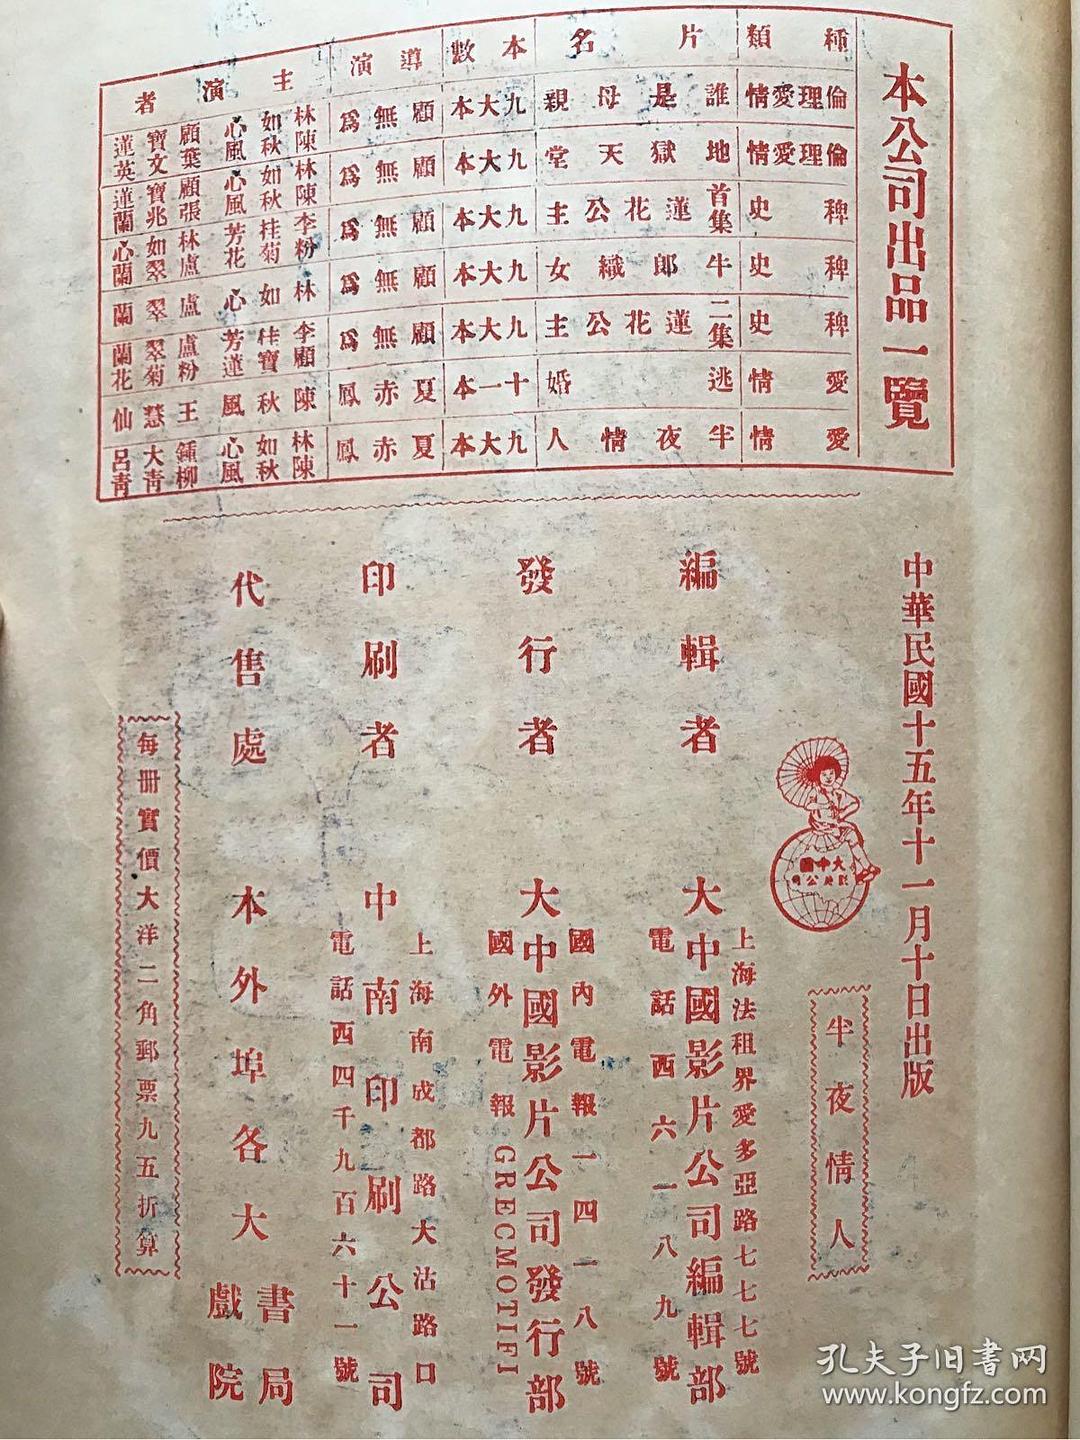 本公司出品一覽
種類 片名 本數 導演 主演者
倫理愛情 誰是母親 九大本 顧無爲 林如心 陳秋風 顧寶蓮 葉文英
倫理愛情 地獄天堂 九大本 顧無爲 林如心 陳秋風 顧寶蓮 張兆蘭
稗史 首集 蓮花公主 九大本 顧無爲 李桂芳 粉菊花 林如心 盧翠蘭
稗史 牛郎織女 九大本 顧無爲 林如心 盧翠蘭
稗史 二集 蓮花公主 九大本 顧無爲 李桂芳 顧寶蓮 盧翠蘭 粉菊花
愛情 逃婚 十一本 夏赤鳳 陳秋風 王慧仙
愛情 半夜情人 九大本 夏赤鳳 林如心 陳秋風 鍾大呂 柳青青
中華民國十五年十一月十日出版
大中國
影片公司
半夜情人
編輯者
上海法租界愛多亞路七七七號
大中國影片公司編輯部
電話西六一八九號
發行者
國內電報一四一八號
大中國影片公司發行部
國外電報GRECMOTIFI
印刷者
上海南成都路大沽路口
中南印刷公司
電話西四千九百六十一號
代售處
本外埠各大
書局
戲院
每冊實價大洋二角郵票九五折算
孔夫子旧书网
www.kongfz.com